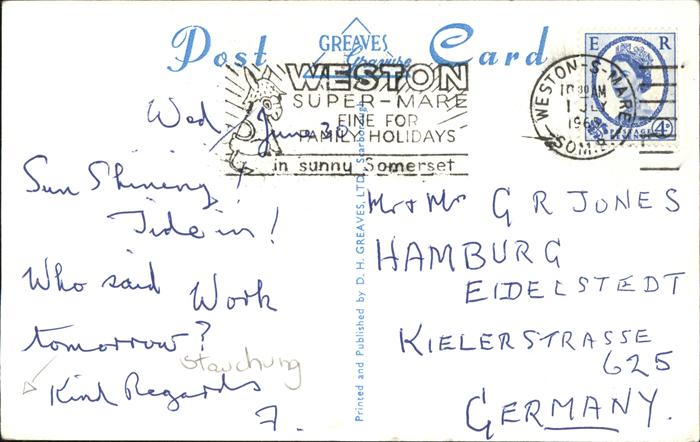 Post Card
GREAVES
Gravure
WESTON
SUPER-MARE
FINE FOR
FAMILY HOLIDAYS
in sunny Somerset
E R
WESTON-S-MARE
10 30 AM
1 JLY
SOM.
POSTAGE
4D
Wed June 30
Sun Shining,
Tide in!
Who said Work
tomorrow?
Stauchung
Kind Regards
F.
Printed and Published by D. H. GREAVES, LTD., Scarborough
Mr & Mr G R JONES
HAMBURG
EIDELSTEDT
KIELERSTRASSE
625
GERMANY.